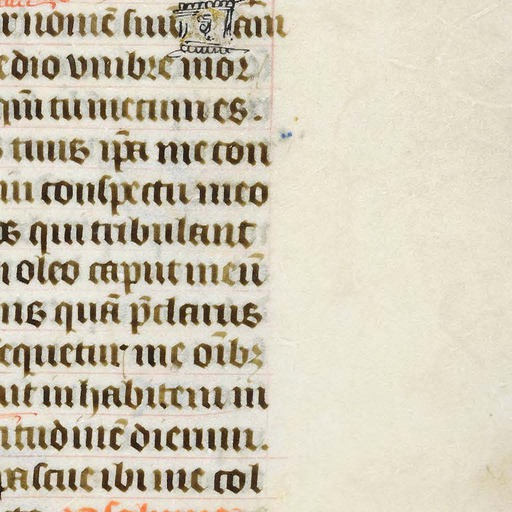 r nomē suū. Nam
edio vmbre mor
qm̄ tu mecum es.
s tuus ip̄a me con
in conspectu meo
os qui tribulant
n oleo caput meū
ns quā p̄clarus
equetur me oībꝫ
ut inhabitem in
itudinē dierum.
pascue ibi me col